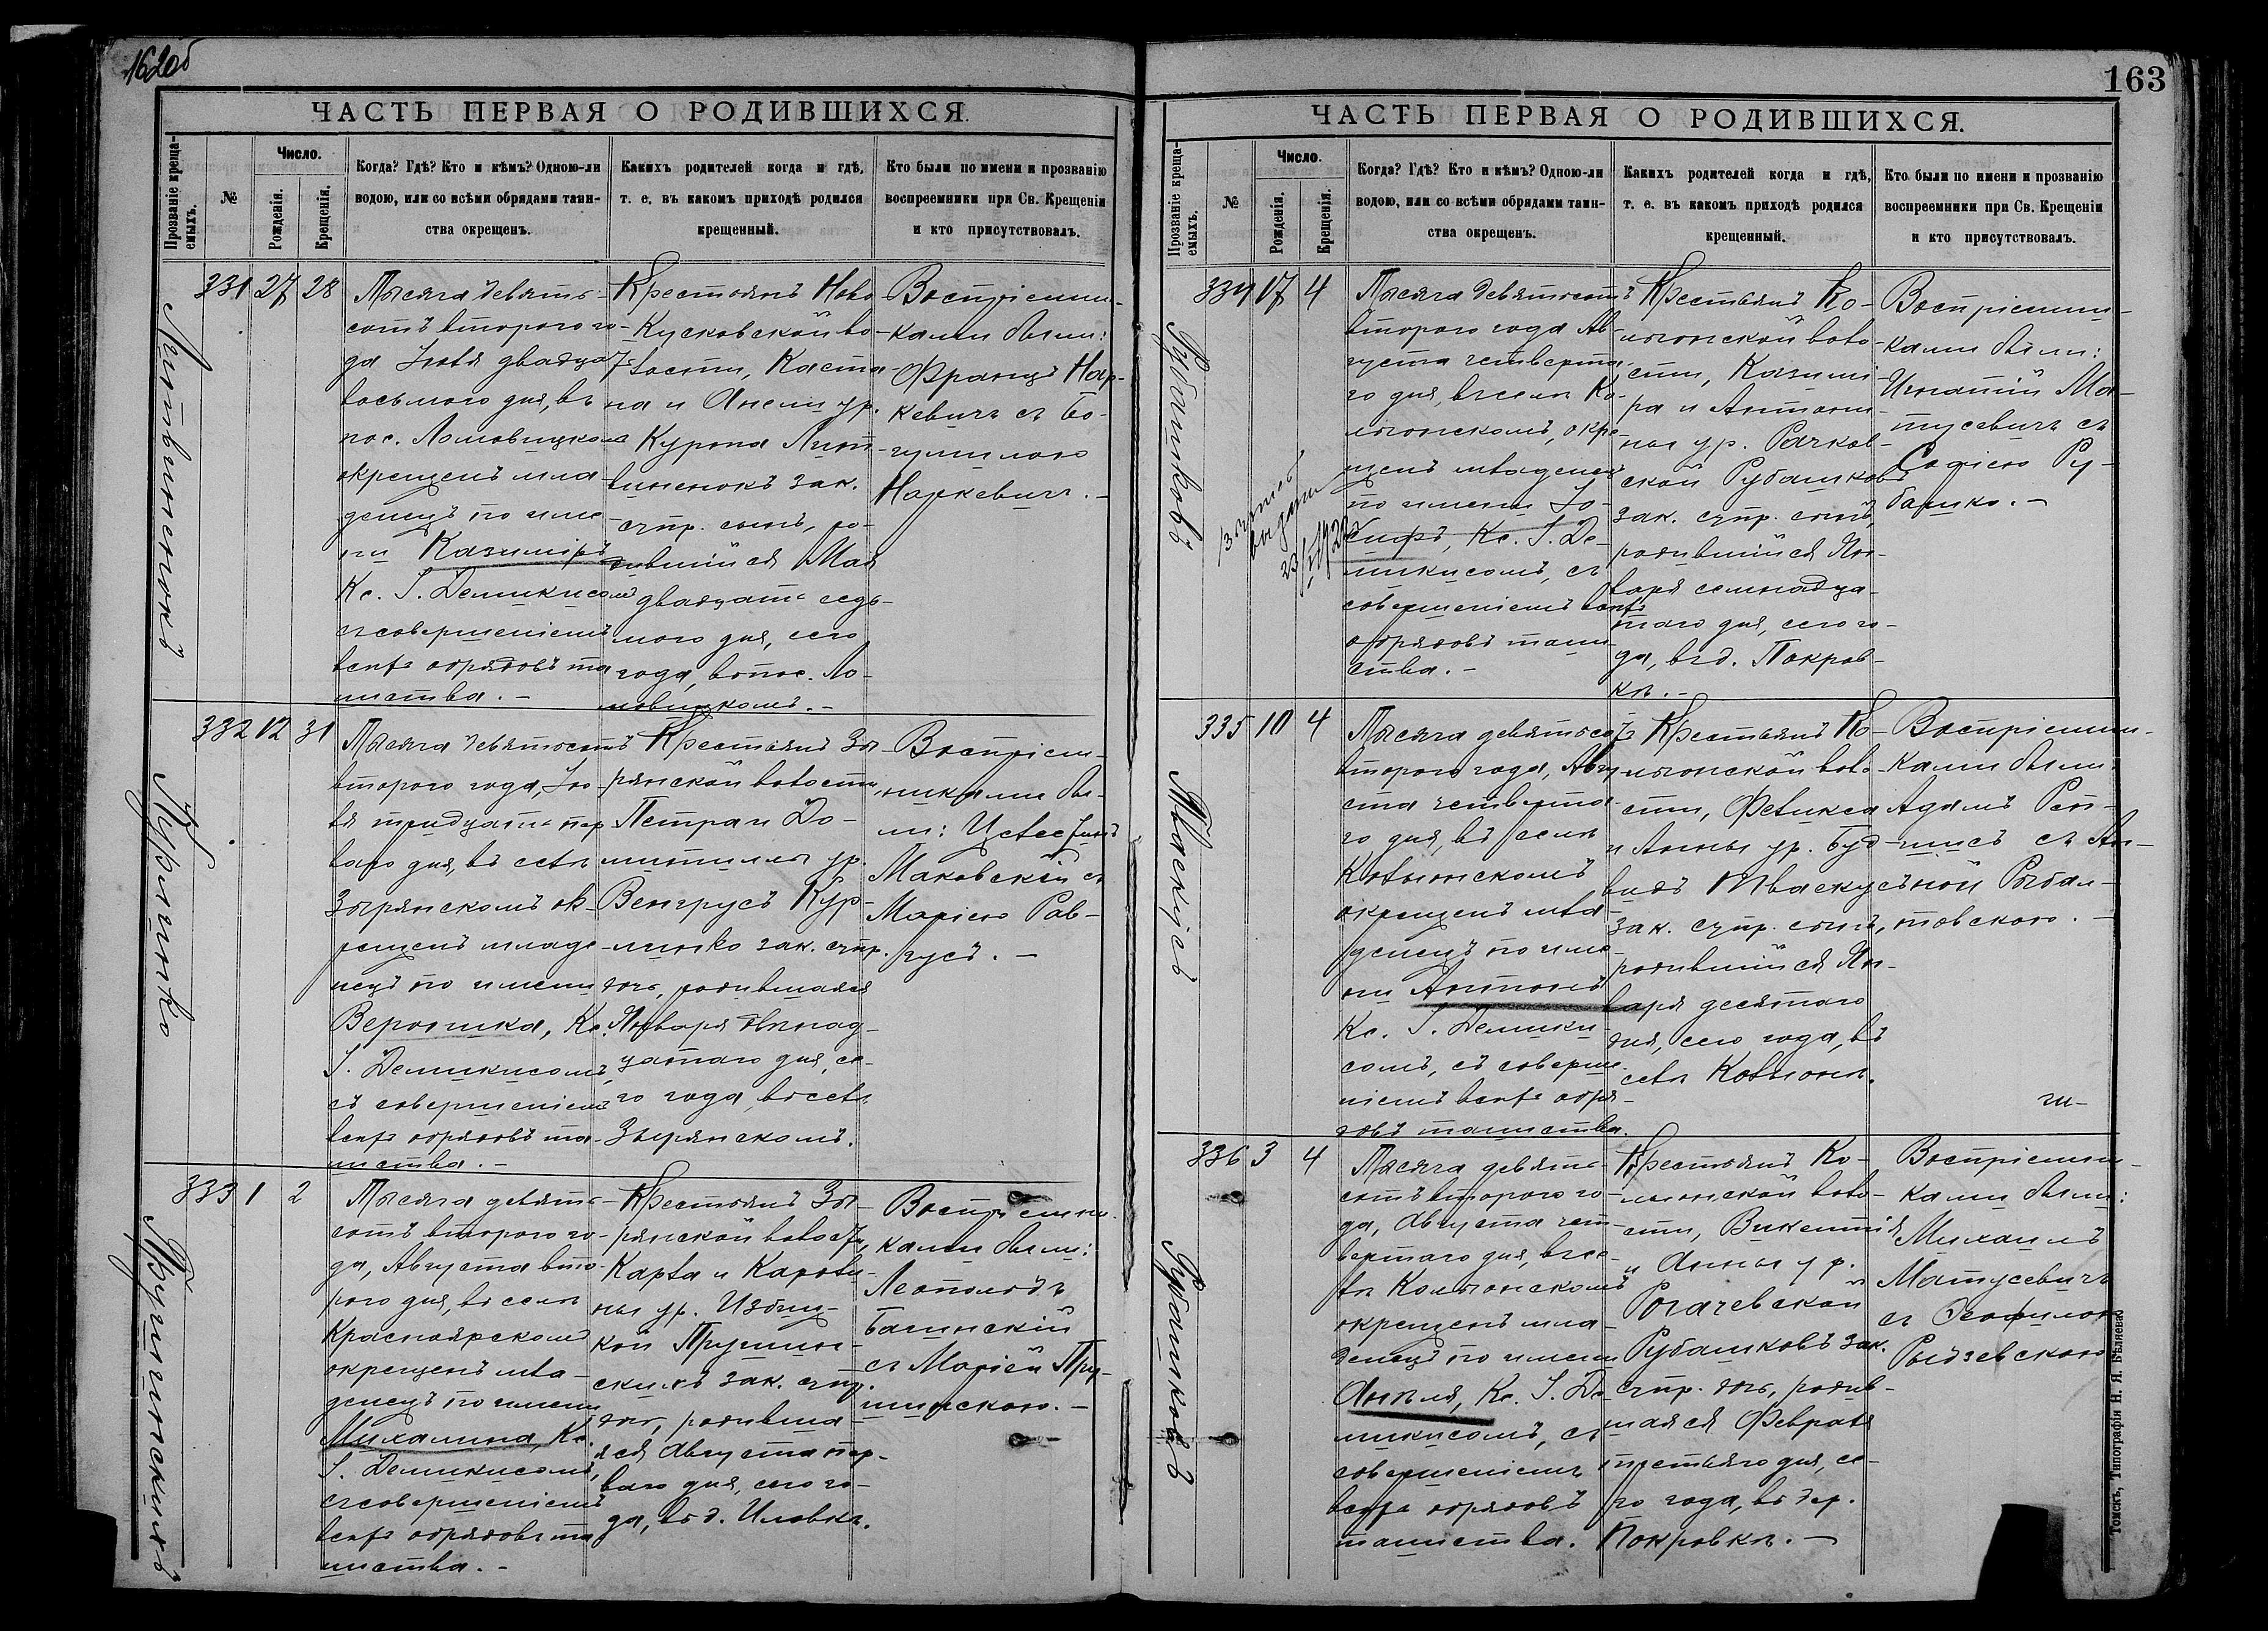 162об
ЧАСТЬ ПЕРВАЯ О РОДИВШИХСЯ.
Прозваніе крещаемыхъ.
№
Число.
Рожденія.
Крещенія.
Когда? Гдѣ? Кто и кѣмъ? Одною-ли
водою, или со всѣми обрядами таин-
ства окрещенъ.
Каких родителей когда и гдѣ,
т. е. въ какомъ приходѣ родился
крещенный.
Кто были по имени и прозванію
воспреемники при Св. Крещеніи
и кто присутствовалъ.
Литвиненокъ
331 27 28
Тысяча девять-
сотъ второго го-
да Іюля двадца
восьмого дня, въ
пос. Ломовицкомъ
окрещенъ мла-
денецъ по име-
ни Казиміръ
Кс. І. Демикисомъ
съ совершеніемъ
всѣхъ обрядовъ та
инства. -
Крестьянъ Ново
Кусковской во-
лости, Каста-
на и Анели ур.
Курона Лит-
виненокъ зак.
супр. сынъ, ро-
дившійся Мая
двадцать седь-
мого дня, сего
года, въ пос. Ло-
мовицкомъ. -
Воспріемни-
ками были:
Францъ Нар-
кевичъ съ Бо-
гумилою
Наркевичъ. -
Курилинко
332 12 31
Тысяча девятьсотъ
второго года, Ію-
ля тридцать пер
ваго дня, въ селѣ
Зырянскомъ ок-
рещенъ младе-
нецъ по имени
Вероника, Кс.
І. Демикисомъ,
съ совершеніемъ
всѣхъ обрядовъ та-
инства. -
Крестьянъ Зы-
рянской волости,
Петра и До-
митилы ур.
Венгрусъ Кур-
линко зак. супр.
дочь, родившаяся
Января двѣнад-
цатаго дня, се-
го года, въ селѣ
Зырянскомъ.
Воспріем-
никами бы-
ли: Целестинъ
Маковскій съ
Маріею Рав-
гусъ. -
Прушинскихъ
333 1 2
Тысяча девять-
сотъ второго го-
да, Августа вто-
рого дня, въ селѣ
Красноярскомъ
окрещенъ мла-
денецъ по имени
Михалина, Кс.
І. Демикисомъ,
съ совершеніемъ
всѣхъ обрядовъ та
инства. -
Крестьянъ Зы-
рянской волости,
Карла и Кароли-
ны ур. Избиц-
кой Прушин-
скихъ зак. супр.
дочь, родивша-
яся Августа пер-
ваго дня, сего го-
да, въ д. Иловкѣ.
Воспріемни-
ками были:
Леопольдъ
Багинскій
съ Маріей Пру-
шинскою. -
163
ЧАСТЬ ПЕРВАЯ О РОДИВШИХСЯ.
Прозваніе крещаемыхъ.
№
Число.
Рожденія.
Крещенія.
Когда? Гдѣ? Кто и кѣмъ? Одною-ли
водою, или со всѣми обрядами таин-
ства окрещенъ.
Каких родителей когда и гдѣ,
т. е. въ какомъ приходѣ родился
крещенный.
Кто были по имени и прозванію
воспреемники при Св. Крещеніи
и кто присутствовалъ.
Рубашковъ
334 17 4
Тысяча девятьсотъ
второго года Ав-
густа четверта
го дня, въ селѣ Ко-
льонскомъ, окре-
щенъ младенецъ
по имени Іо-
сифъ, Кс. І. Де-
микисомъ, съ
совершеніемъ всѣхъ
обрядовъ таин
ства. -
Крестьянъ Ко-
льонской воло-
сти, Казимі-
ра и Антони-
ны ур. Рачков-
ской Рубашковъ
зак. супр. сынъ,
родившійся Ян-
варя семнадца-
таго дня, сего го-
да, въ д. Покров-
кѣ. -
Воспріемни-
ками были:
Игнатій Ма-
тусевичъ съ
Софіею Ру-
башко. -
Тваскусъ
335 10 4
Тысяча девятьсотъ
второго года, Авгу
ста четверта-
го дня, въ селѣ
Кольонскомъ
окрещенъ мла-
денецъ по име
ни Антонъ
Кс. І. Демики-
сомъ, съ соверше-
ніемъ всѣхъ обря-
довъ таинства.
Крестьянъ Ко-
льонской воло-
сти, Феликса
и Анны ур. Буд-
видъ Тваскусъ
зак. супр. сынъ,
родившійся Ян-
варя десятаго
дня, сего года, въ
селѣ Кольонѣ.
Воспріемни-
ками были:
Адамъ Реп-
чисъ съ Ан-
ной Рыбал-
товскою. -
Рубашковъ
336 3 4
Тысяча девять-
сотъ второго го-
да, Августа чет-
вертаго дня, въ се-
лѣ Кольонскомъ
окрещенъ мла-
денецъ по имени
Анеля, Кс. І. Де-
микисомъ, съ
совершеніемъ
всѣхъ обрядовъ
таинства.
Крестьянъ Ко-
льонской воло-
сти, Викентія
и Анны ур.
Рогачевской
Рубашковъ зак.
супр. дочь, родив-
шаяся Февраля
третьяго дня, се-
го года, въ дер.
Покровкѣ. -
Воспріемни-
ками были:
Михаилъ
Матусевичъ
съ Теофилою
Рыдзевскою
Томскъ, Типографія Н. Я. Бѣляева